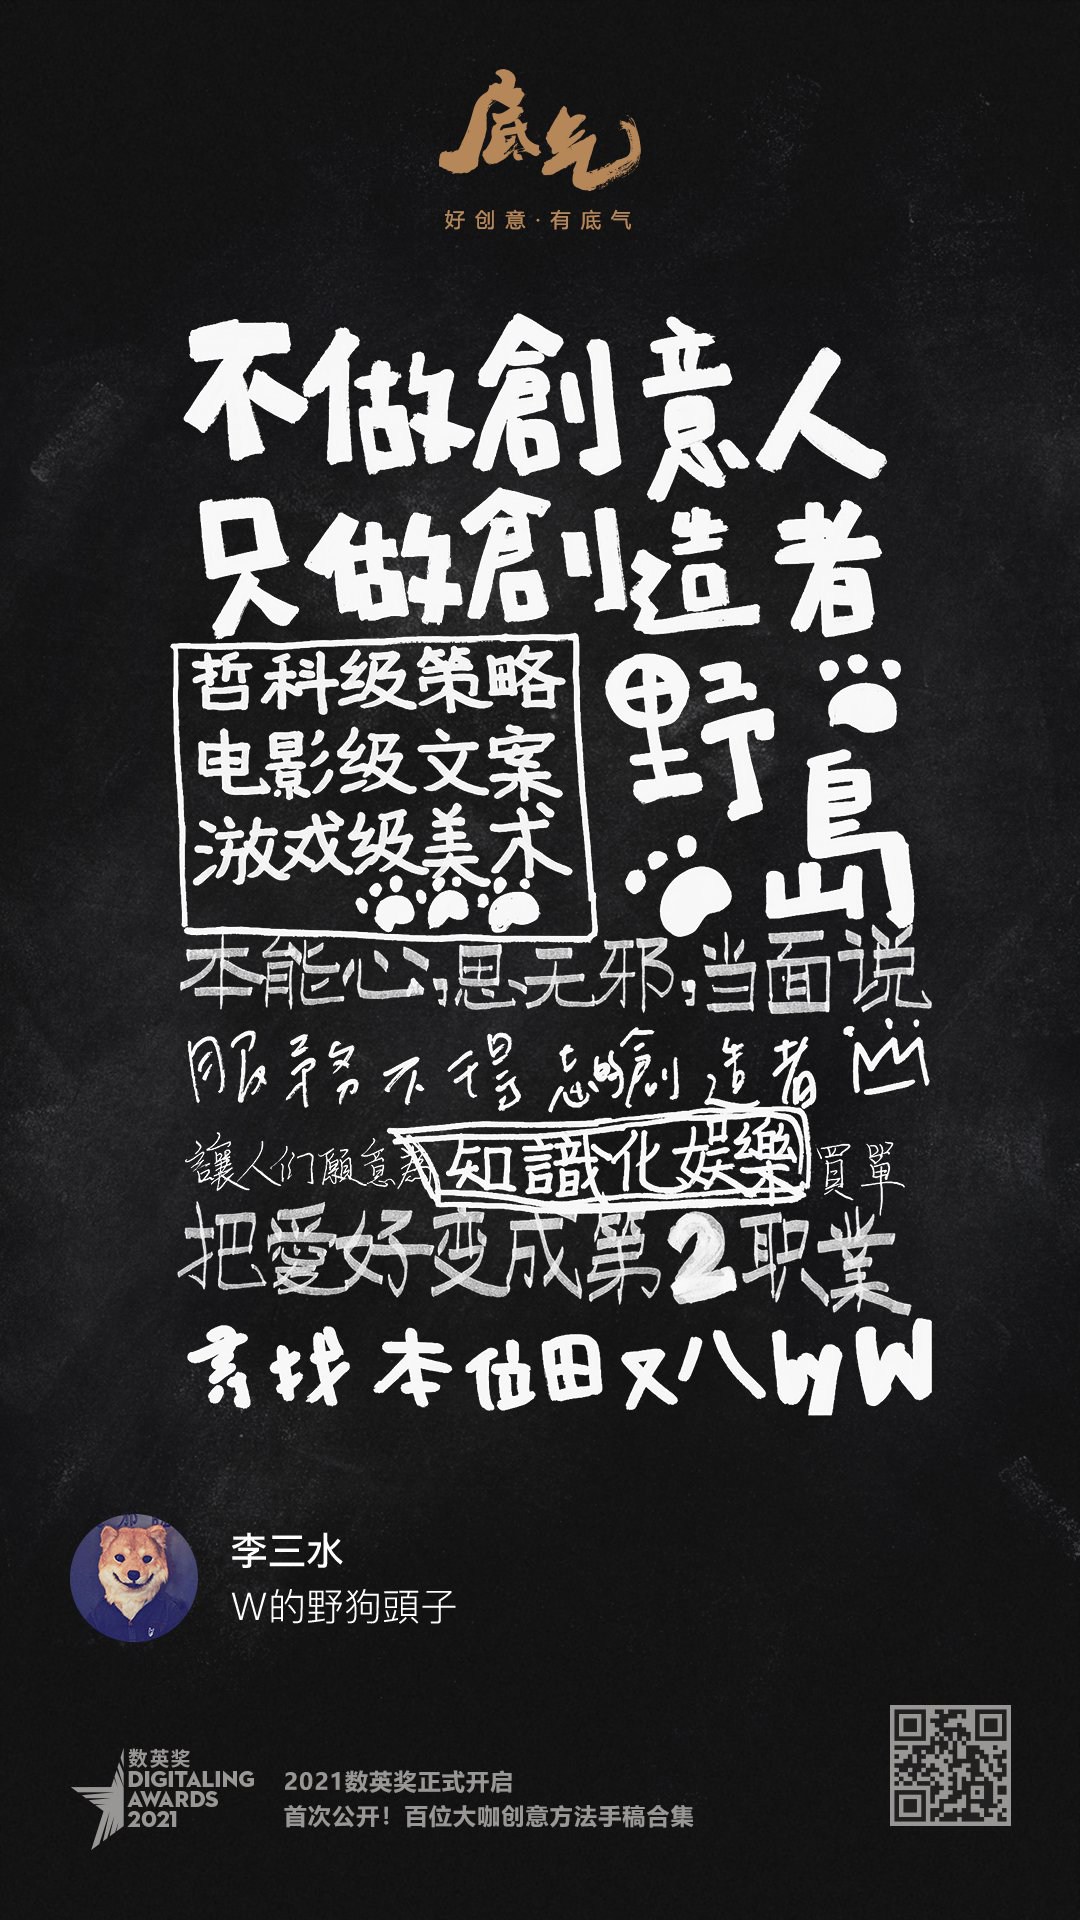 底气
好创意·有底气
不做創意人
只做創造者
哲科级策略
电影级文案
游戏级美术
野島
本能心;思无邪;当面说
服务不得志的創造者
讓人们願意為知識化娱樂買單
把愛好变成第2职業
寻找本位田又八 by W
李三水
W的野狗頭子
数英奖
DIGITALING
AWARDS
2021
2021数英奖正式开启
首次公开！百位大咖创意方法手稿合集